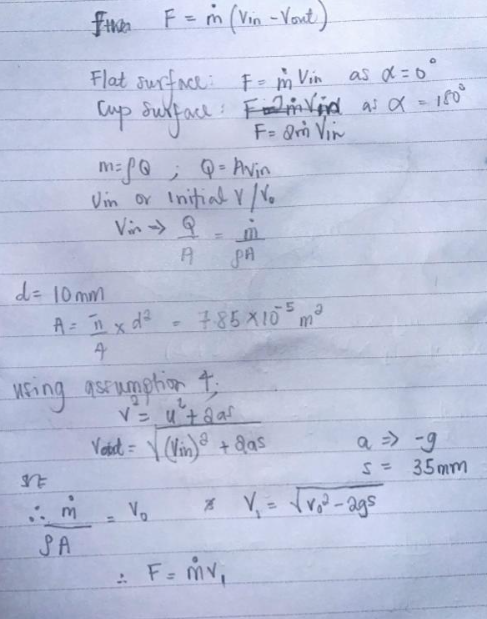 F = ṁ (Vin - Vout)
Flat surface: F = ṁ Vin as α = 0°
Cup surface: F = 2ṁ Vin as α = 180°
F = 2ṁ Vin
m = ρQ ; Q = AVin
Vin or initial V / V₀
Vin → Q/A = ṁ/ρA
d = 10mm
A = π/4 × d² = 7.85 × 10⁻⁵ m²
using assumption 4,
v² = u² + 2as
Vout = √(Vin)² + 2as a ⇒ -g
s = 35mm
∴ ṁ/ρA = V₀ & V₁ = √V₀² - 2gs
∴ F = ṁv₁